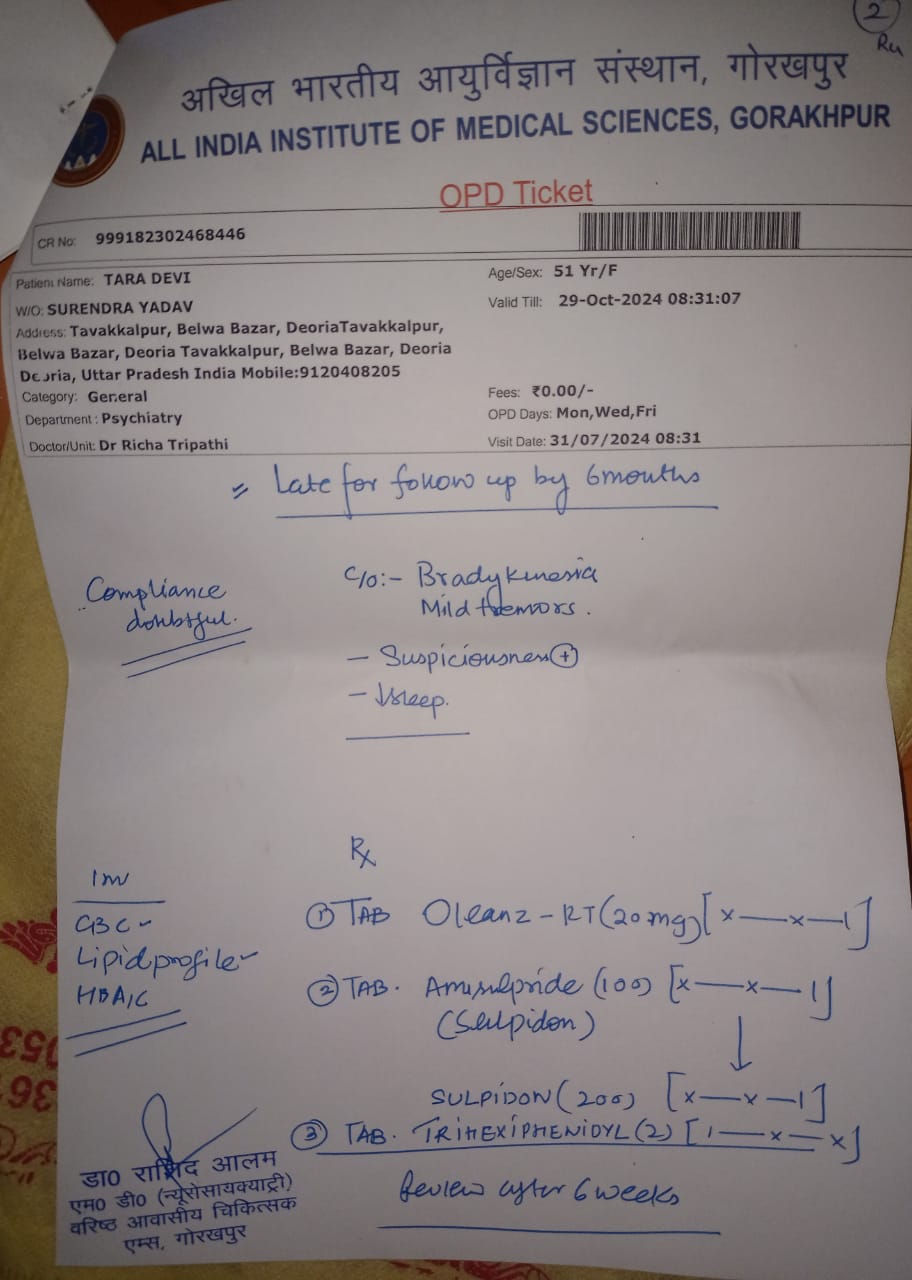 2
अखिल भारतीय आयुर्विज्ञान संस्थान, गोरखपुर
ALL INDIA INSTITUTE OF MEDICAL SCIENCES, GORAKHPUR
OPD Ticket
CR No: 999182302468446
Patient Name: TARA DEVI
Age/Sex: 51 Yr/F
W/O: SURENDRA YADAV
Valid Till: 29-Oct-2024 08:31:07
Address: Tavakkalpur, Belwa Bazar, DeoriaTavakkalpur,
Belwa Bazar, Deoria Tavakkalpur, Belwa Bazar, Deoria
Deoria, Uttar Pradesh India Mobile:9120408205
Category: General
Fees: ₹0.00/-
Department : Psychiatry
OPD Days: Mon,Wed,Fri
Doctor/Unit: Dr Richa Tripathi
Visit Date: 31/07/2024 08:31
= Late for follow up by 6 months
Compliance
doubtful.
C/o:- Bradykinesia
Mild tremors.
- Suspiciousness (+)
- ↓sleep.
Rx
Inv
CBC
Lipid profile
HBA1C
① TAB Oleanz - RT (20mg) [x—x—1]
② TAB. Amisulpride (100) [x—x—1]
(Sulpidon)
↓
SULPIDON (200) [x—x—1]
③ TAB. TRIHEXIPHENIDYL (2) [1—x—x]
Review after 6 weeks
डा० राशिद आलम
एम० डी० (न्यूरोसायक्याट्री)
वरिष्ठ आवासीय चिकित्सक
एम्स, गोरखपुर